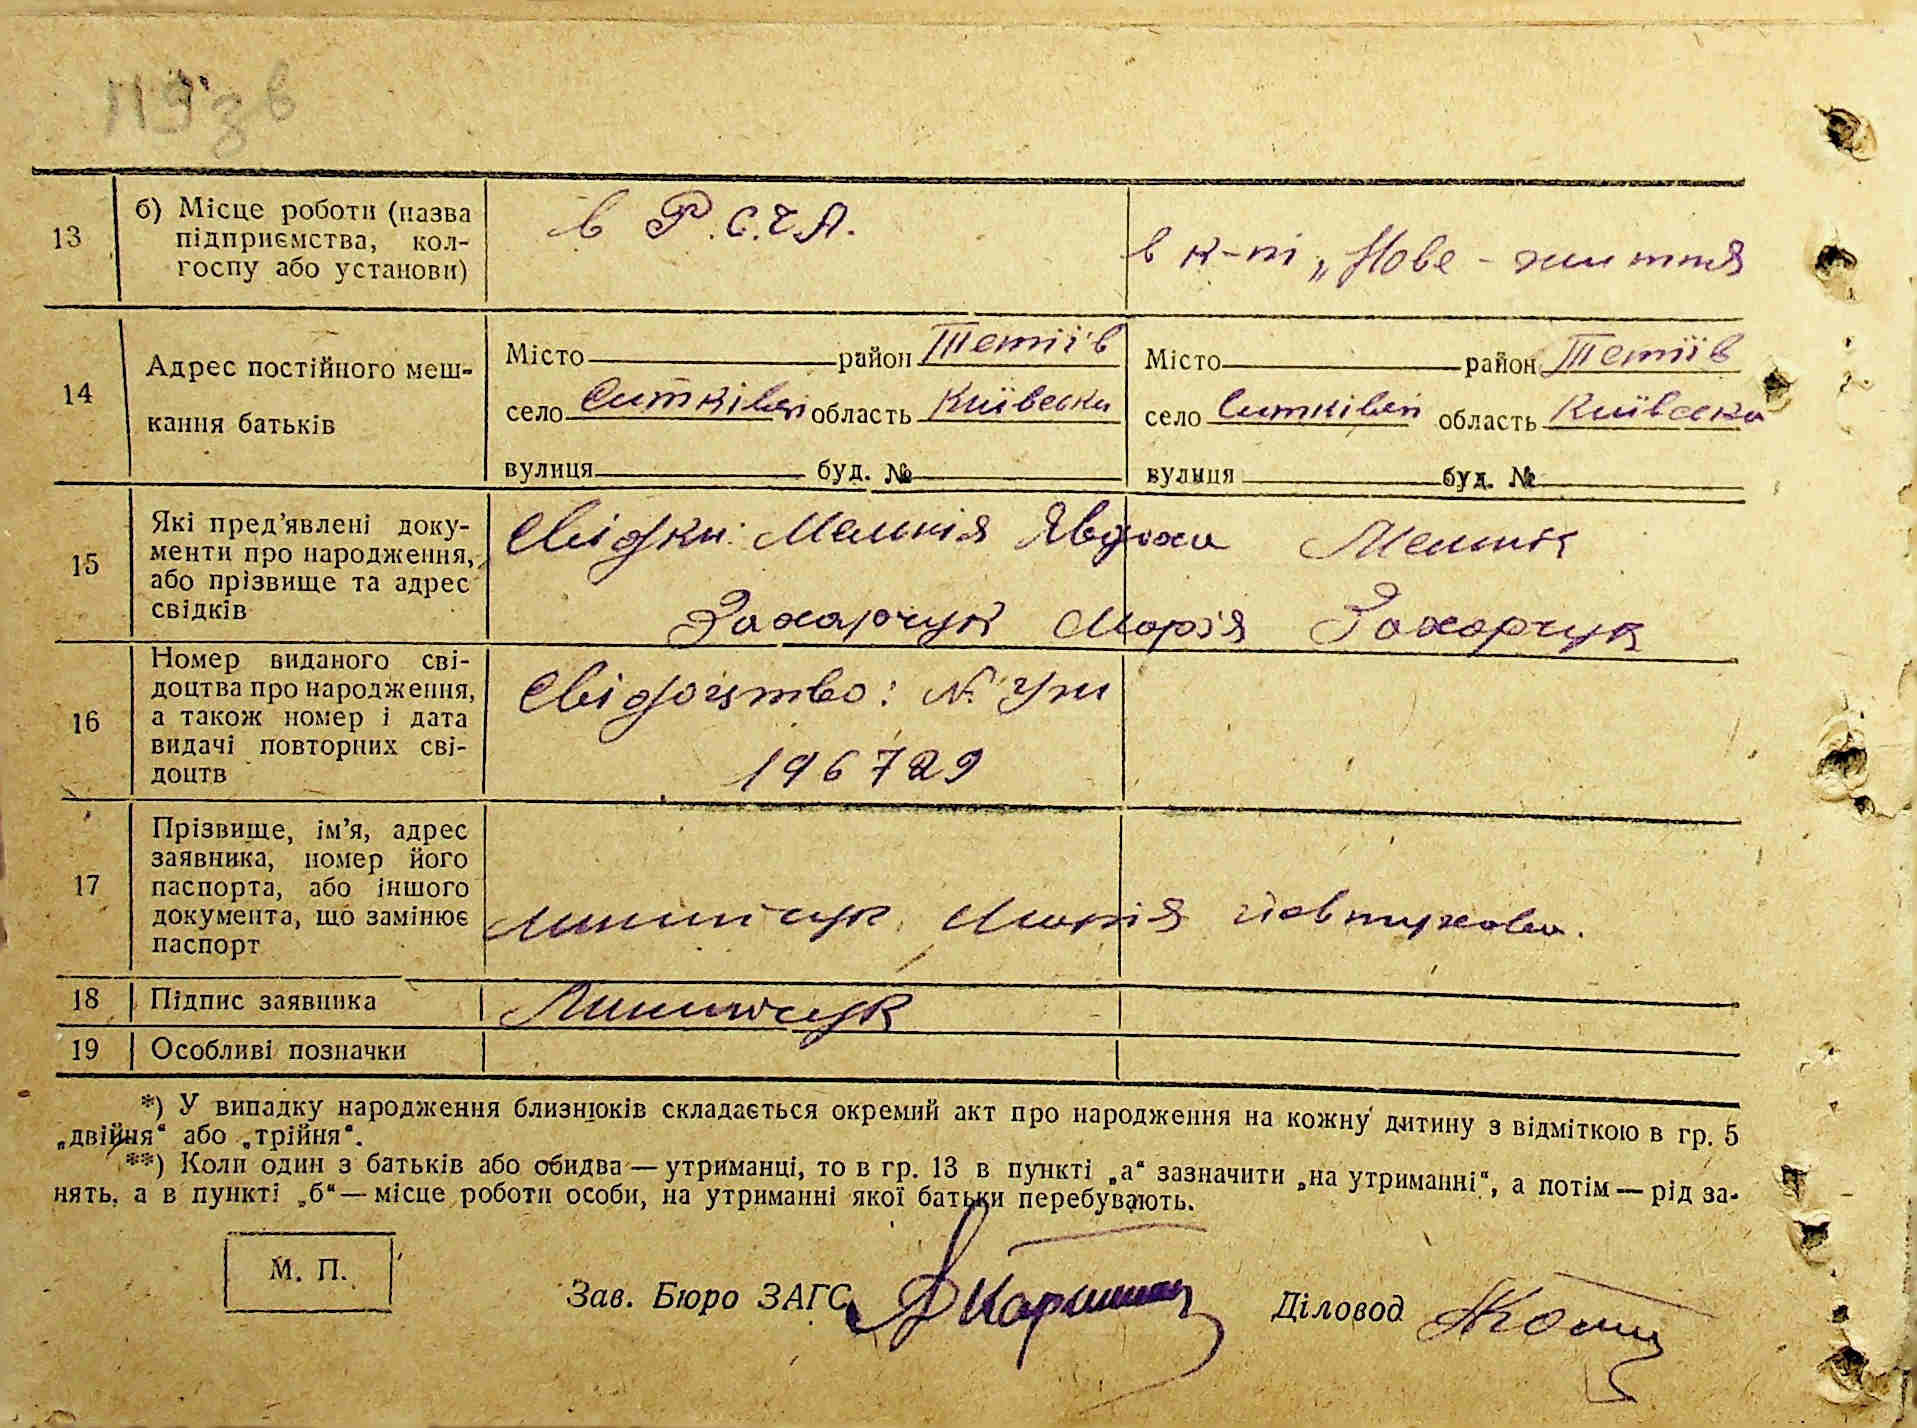 119 зв
13 б) Місце роботи (назва підприємства, кол-госпу або установи) в Р.С.Ч.А. в к-пі „Нове - життя
14 Адрес постійного меш-кання батьків
Місто район Тетіїв Місто район Тетіїв
село Ситківці область Київська село Ситківці область Київська
вулиця буд. № вулиця буд. №
15 Які пред’явлені доку-
менти про народження,
або прізвище та адрес
свідків
Свідки: Явдоха
Захарчук Марія Захарчук
16 Номер виданого сві-
доцтва про народження,
а також номер і дата
видачі повторних сві-
доцтв
Свідоцтво: №
196729
17 Прізвище, ім’я, адрес
заявника, номер його
паспорта, або іншого
документа, що замінює
паспорт
Марія
18 Підпис заявника
19 Особливі позначки
*) У випадку народження близнюків складається окремий акт про народження на кожну дитину з відміткою в гр. 5
„двійня“ або „трійня“.
**) Коли один з батьків або обидва — утриманці, то в гр. 13 в пункті „а“ зазначити „на утриманні“, а потім — рід за-
нять, а в пункті „б“ — місце роботи особи, на утриманні якої батьки перебувають.
М. П.
Зав. Бюро ЗАГС Діловод